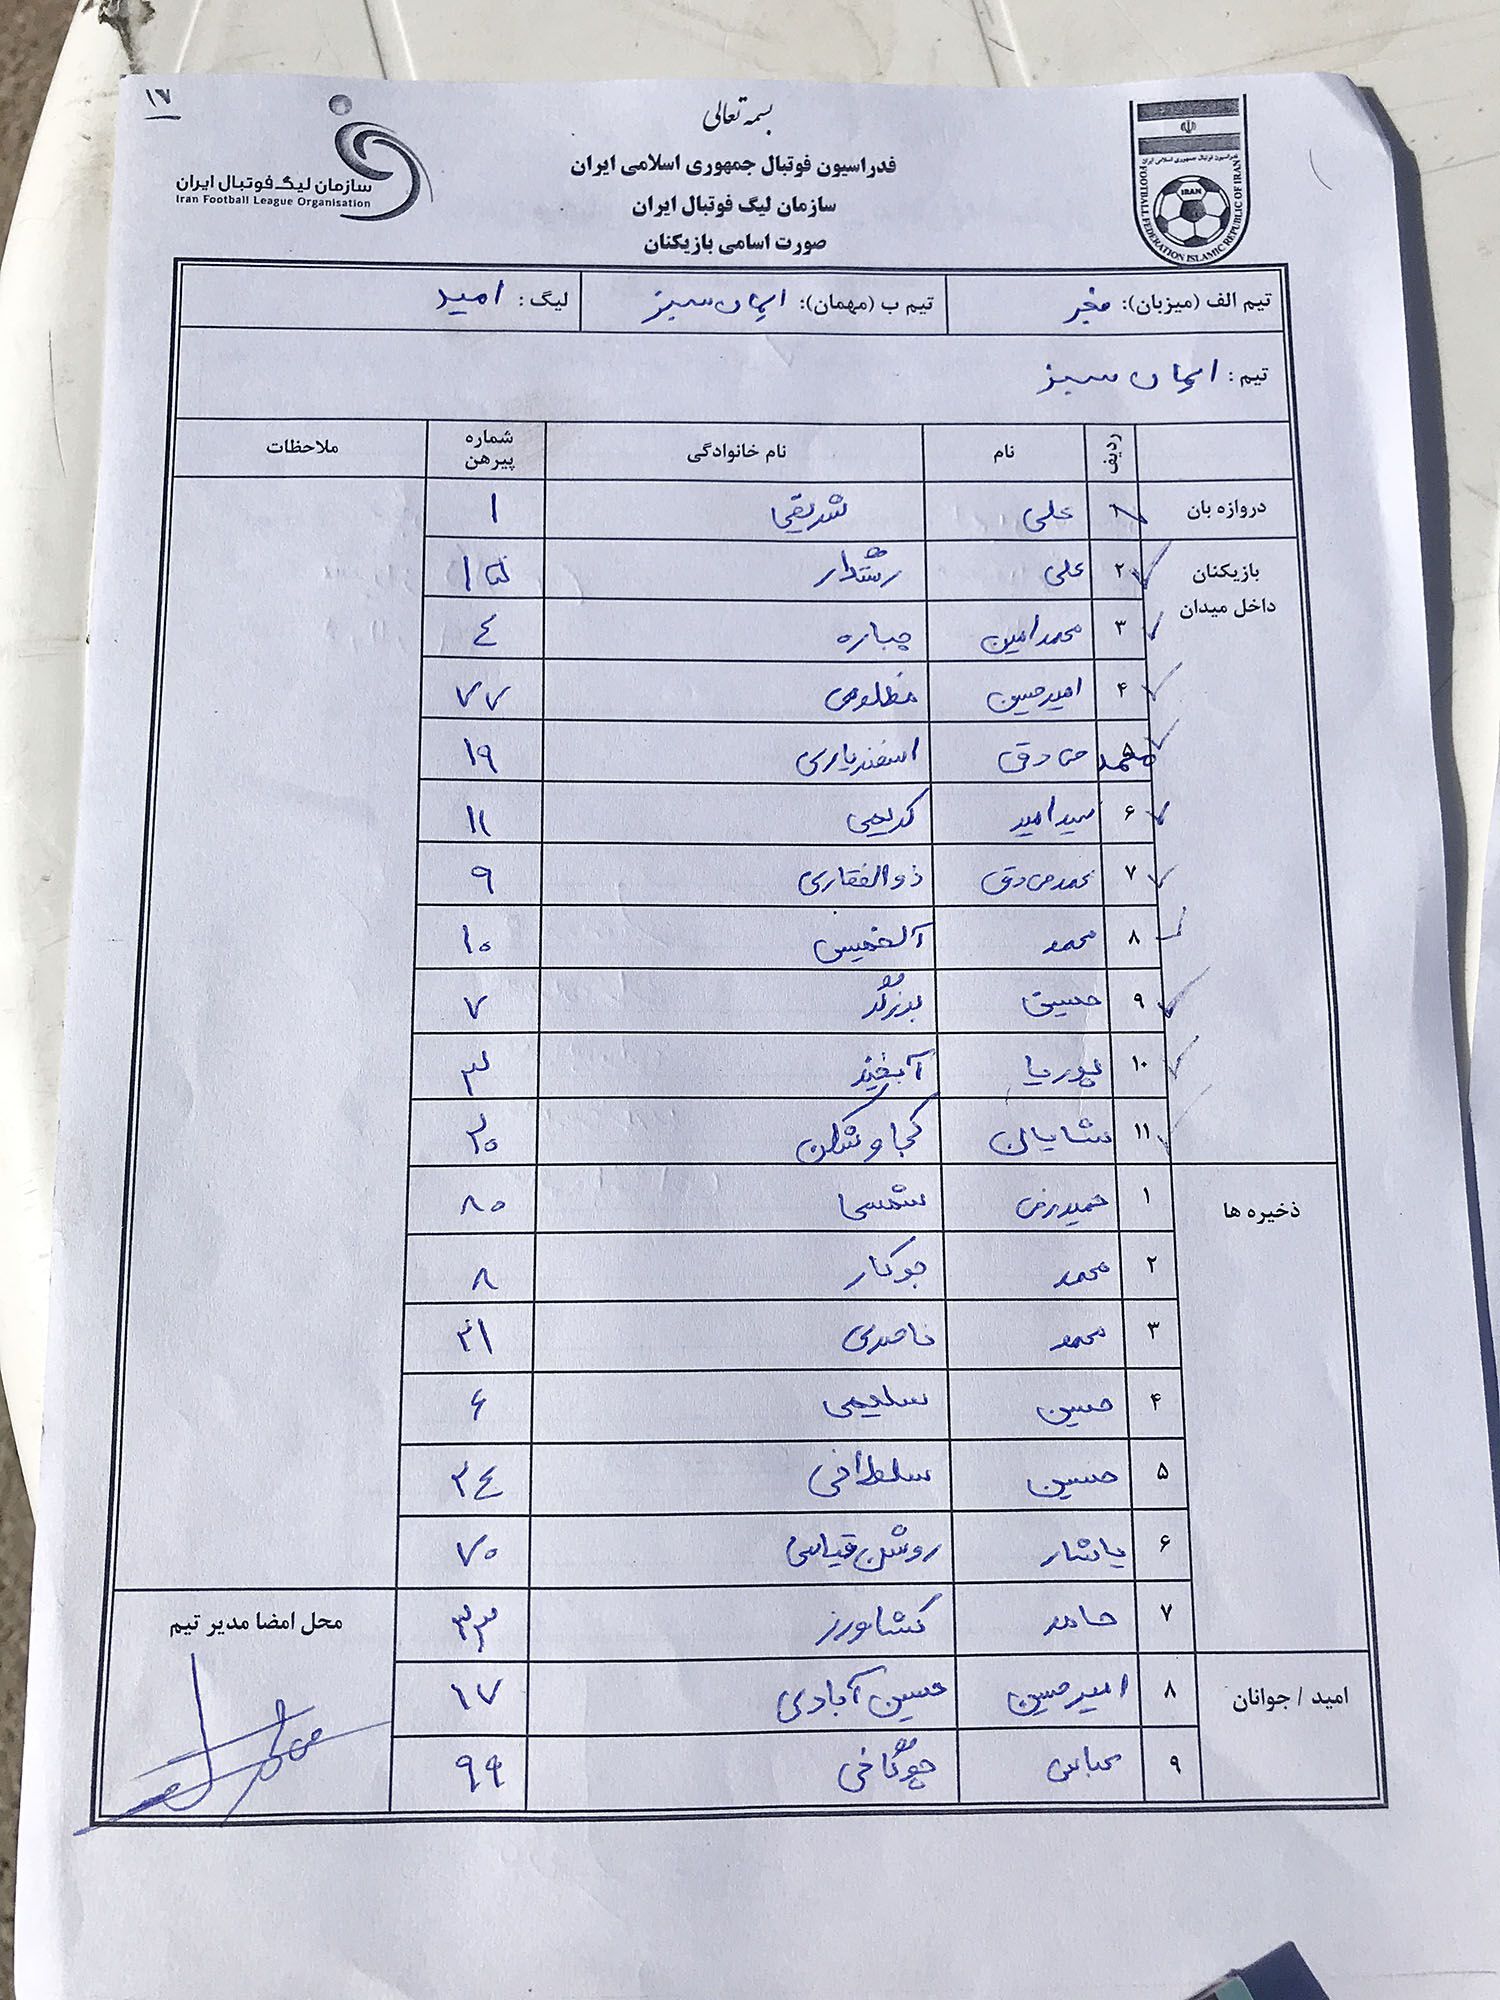 ۱۷
بسمه تعالی
فدراسیون فوتبال جمهوری اسلامی ایران
سازمان لیگ فوتبال ایران
صورت اسامی بازیکنان
سازمان لیگ فوتبال ایران
Iran Football League Organisation
فدراسیون فوتبال جمهوری اسلامی ایران
IRAN
FOOTBALL FEDERATION ISLAMIC REPUBLIC OF IRAN
تیم الف (میزبان): فجر تیم ب (مهمان): ایمان سبز لیگ: امید
تیم: ایمان سبز
ردیف نام نام خانوادگی شماره پیرهن ملاحظات
دروازه بان ۱ علی شریفی ۱
بازیکنان داخل میدان ۲ علی رشتدار ۱۵
۳ محمد امین چباره ٤
۴ امیرحسین مظلومی ۷۷
۵ محمد صادق اسفندیاری ۱۹
۶ سید امید کریمی ۱۱
۷ محمد صادق ذوالفقاری ۹
۸ محمد آلخمیس ۱۰
۹ حسین بدنرگر ۷
۱۰ پوریا آبخیز ۳
۱۱ شایان ۳۰
ذخیره ها ۱ حمیدرضا شمسی ۸۰
۲ محمد جوکار ۸
۳ محمد ناصری ۲۱
۴ حسین سلیمی ۶
۵ حسین سلطانی ۲٤
۶ یاشار روشن قیاسی ۷۰
۷ حامد کشاورز ۳۳
امید / جوانان ۸ امیرحسین حسین آبادی ۱۷
۹ عباس چوگانی ۹۹
محل امضا مدیر تیم